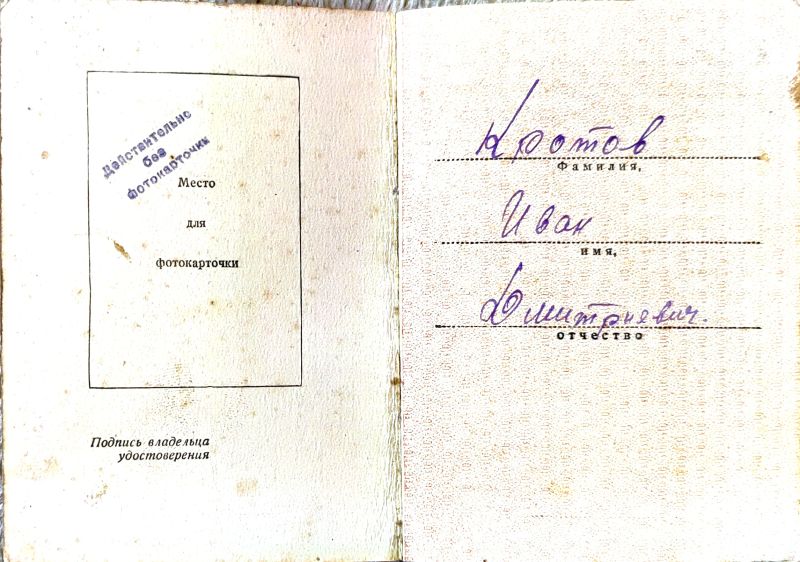 Действительно
без
фотокарточки
Место
для
фотокарточки
Подпись владельца
удостоверения
Кротов
Фамилия,
Иван
имя,
Дмитриевич.
отчество